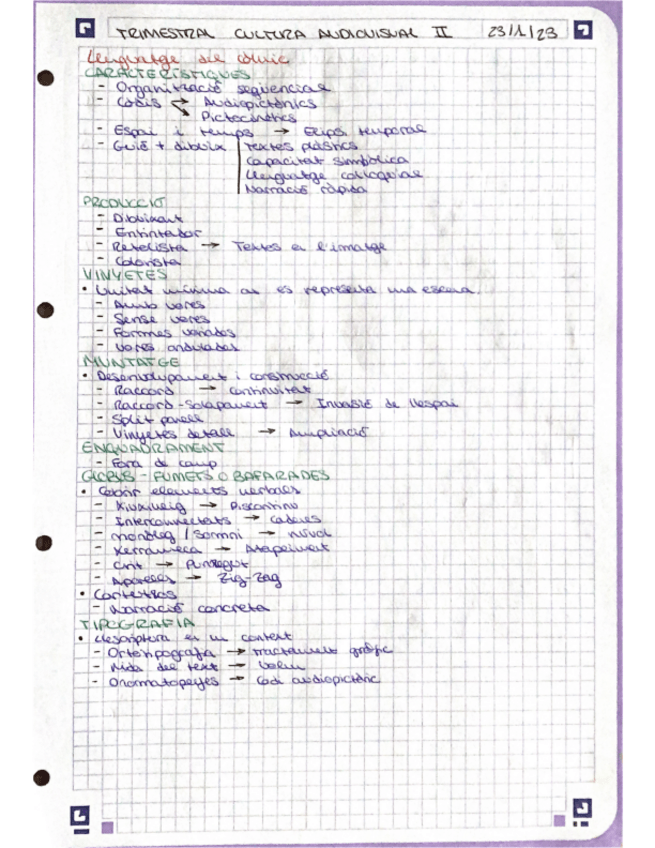 TRIMESTRAL CULTURA AUDIOVISUAL II 23/1/23
Llenguatge del còmic
CARACTERÍSTIQUES
- Organització seqüencial
- Codis → Audiopictònics
→ Pictocinètics
- Espai i temps → El·lipsi temporal
- Guió + dibuix | Textes plàstics
Capacitat simbòlica
Llenguatge col·loquial
Narració ràpida
PRODUCCIÓ
- Dibuixant
- Entintador
- Retolista → Textes a l'imatge
- Colorista
VINYETES
• Unitat mínima on es representa una escena.
- Amb vores
- Sense vores
- Formes variades
- Vores ondulades
MUNTATGE
• Desenvolupament i construcció
- Raccord → Continuïtat
- Raccord-Solapament → Invasió de l'espai
- Split panell
- Vinyetes detall → Ampliació
ENQUADRAMENT
- Fora de camp
GLOBUS - FUMETS O BAFARADES
• Cobrir elements verbals
- Xiuxiueig → Discontinu
- Interconnectats → Cadenes
- Monòleg / Somni → núvol
- Xerrameca → Atapeïment
- Crit → Punxegut
- Aparells → Zig-Zag
• Cartel·les
- Narració concreta
TIPOGRAFIA
• L'escriptura en un context
- Ortotipografia → tractament gràfic
- Mida del text → Volum
- Onomatopeies → Codi audiopictòric